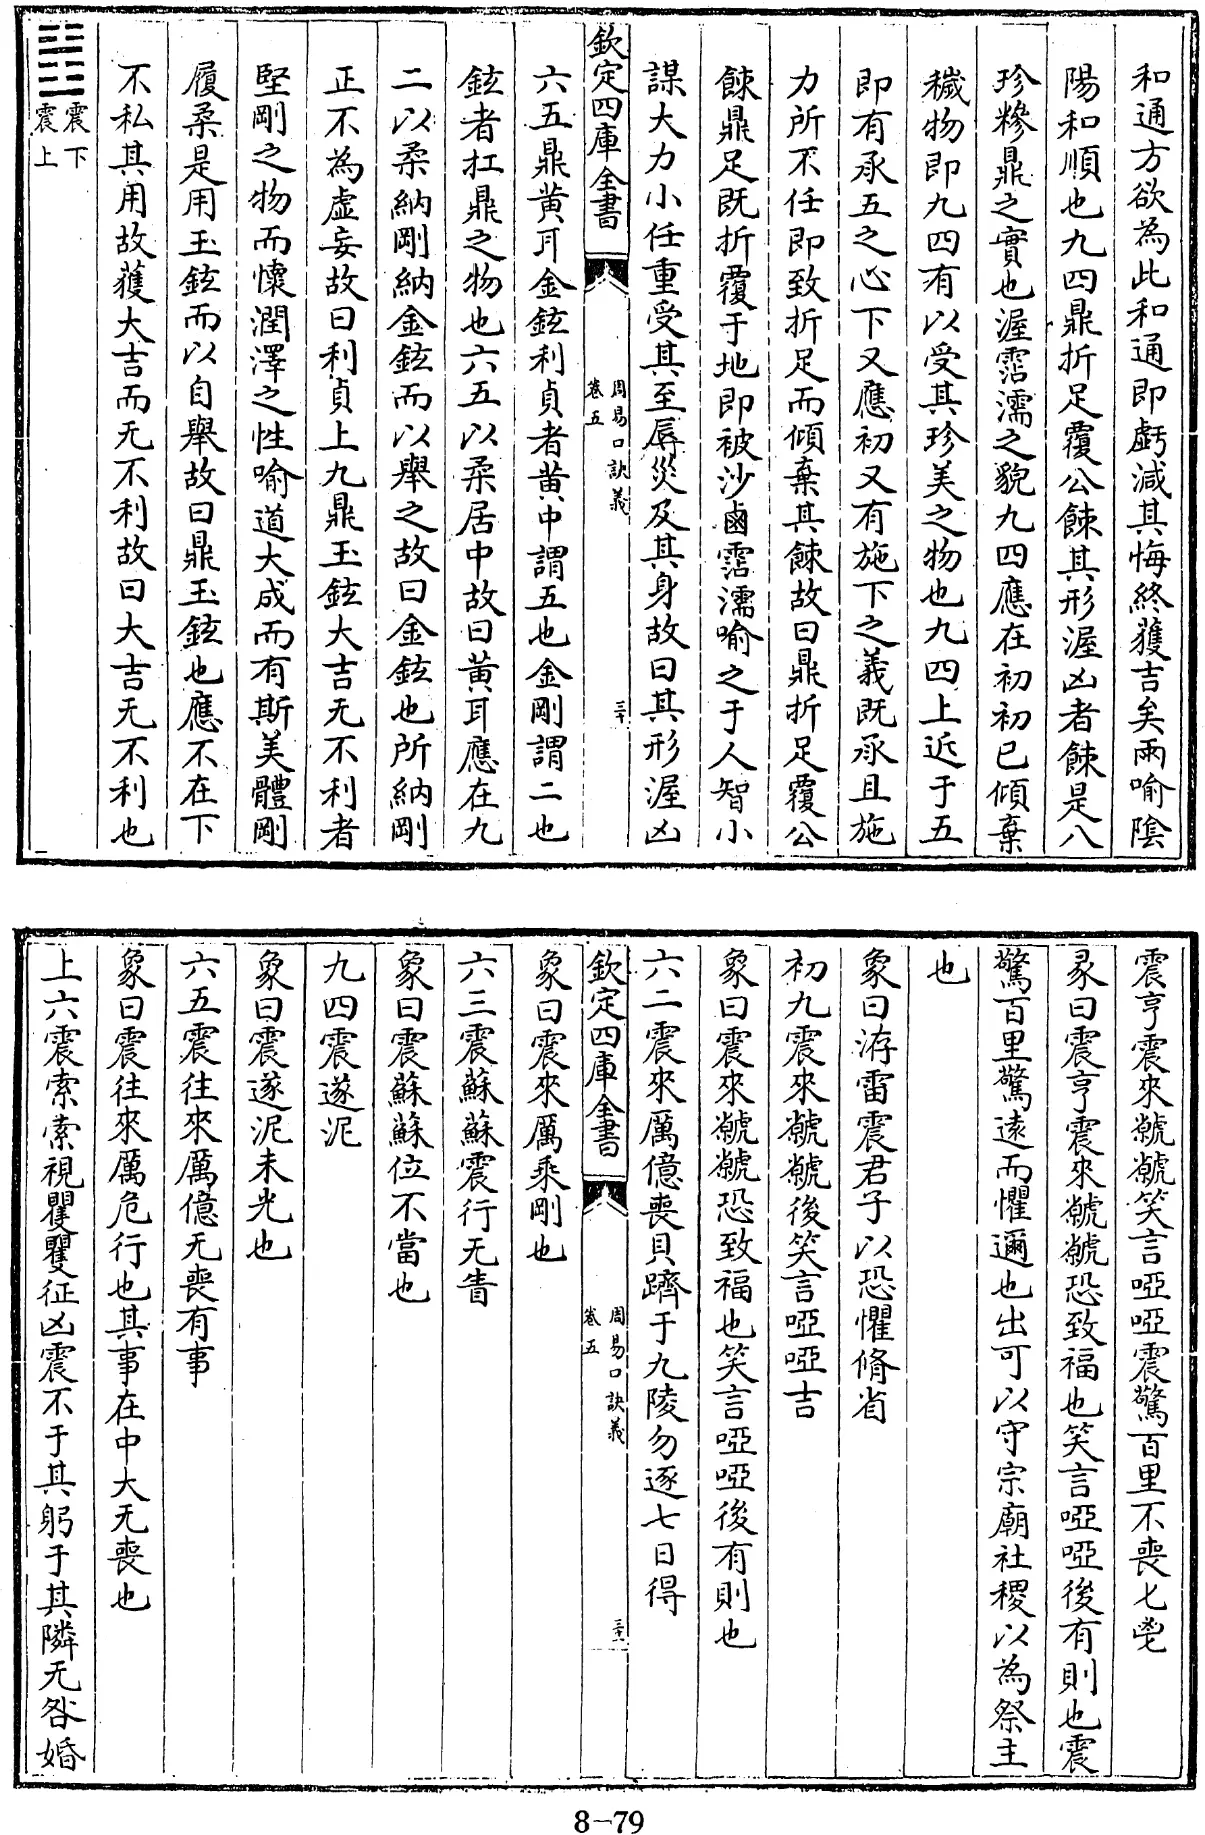 和通方欲為此和通即虧減其悔終獲吉矣兩喻陰
陽和順也九四鼎折足覆公餗其形渥凶者餗是八
珍糝鼎之實也渥霑濡之貌九四應在初初已傾棄
穢物即九四有以受其珍美之物也九四上近于五
即有承五之心下又應初又有施下之義既承且施
力所不任即致折足而傾棄其餗故曰鼎折足覆公
餗鼎足既折覆于地即被沙鹵霑濡喻之于人智小
謀大力小任重受其至辱災及其身故曰其形渥凶
欽定四庫全書
周易口訣義
卷五
三十
六五鼎黃耳金鉉利貞者黃中謂五也金剛謂二也
鉉者扛鼎之物也六五以柔居中故曰黃耳應在九
二以柔納剛納金鉉而以舉之故曰金鉉也所納剛
正不為虛妄故曰利貞上九鼎玉鉉大吉无不利者
堅剛之物而懷潤澤之性喻道大成而有斯美體剛
履柔是用玉鉉而以自舉故曰鼎玉鉉也應不在下
不私其用故獲大吉而无不利故曰大吉无不利也
震下
震上
震亨震來虩虩笑言啞啞震驚百里不喪匕鬯
彖曰震亨震來虩虩恐致福也笑言啞啞後有則也震
驚百里驚遠而懼邇也出可以守宗廟社稷以為祭主
也
象曰洊雷震君子以恐懼脩省
初九震來虩虩後笑言啞啞吉
象曰震來虩虩恐致福也笑言啞啞後有則也
六二震來厲億喪貝躋于九陵勿逐七日得
欽定四庫全書
周易口訣義
卷五
三十一
象曰震來厲乘剛也
六三震蘇蘇震行无眚
象曰震蘇蘇位不當也
九四震遂泥
象曰震遂泥未光也
六五震往來厲億无喪有事
象曰震往來厲危行也其事在中大无喪也
上六震索索視矍矍征凶震不于其躬于其隣无咎婚
8-79